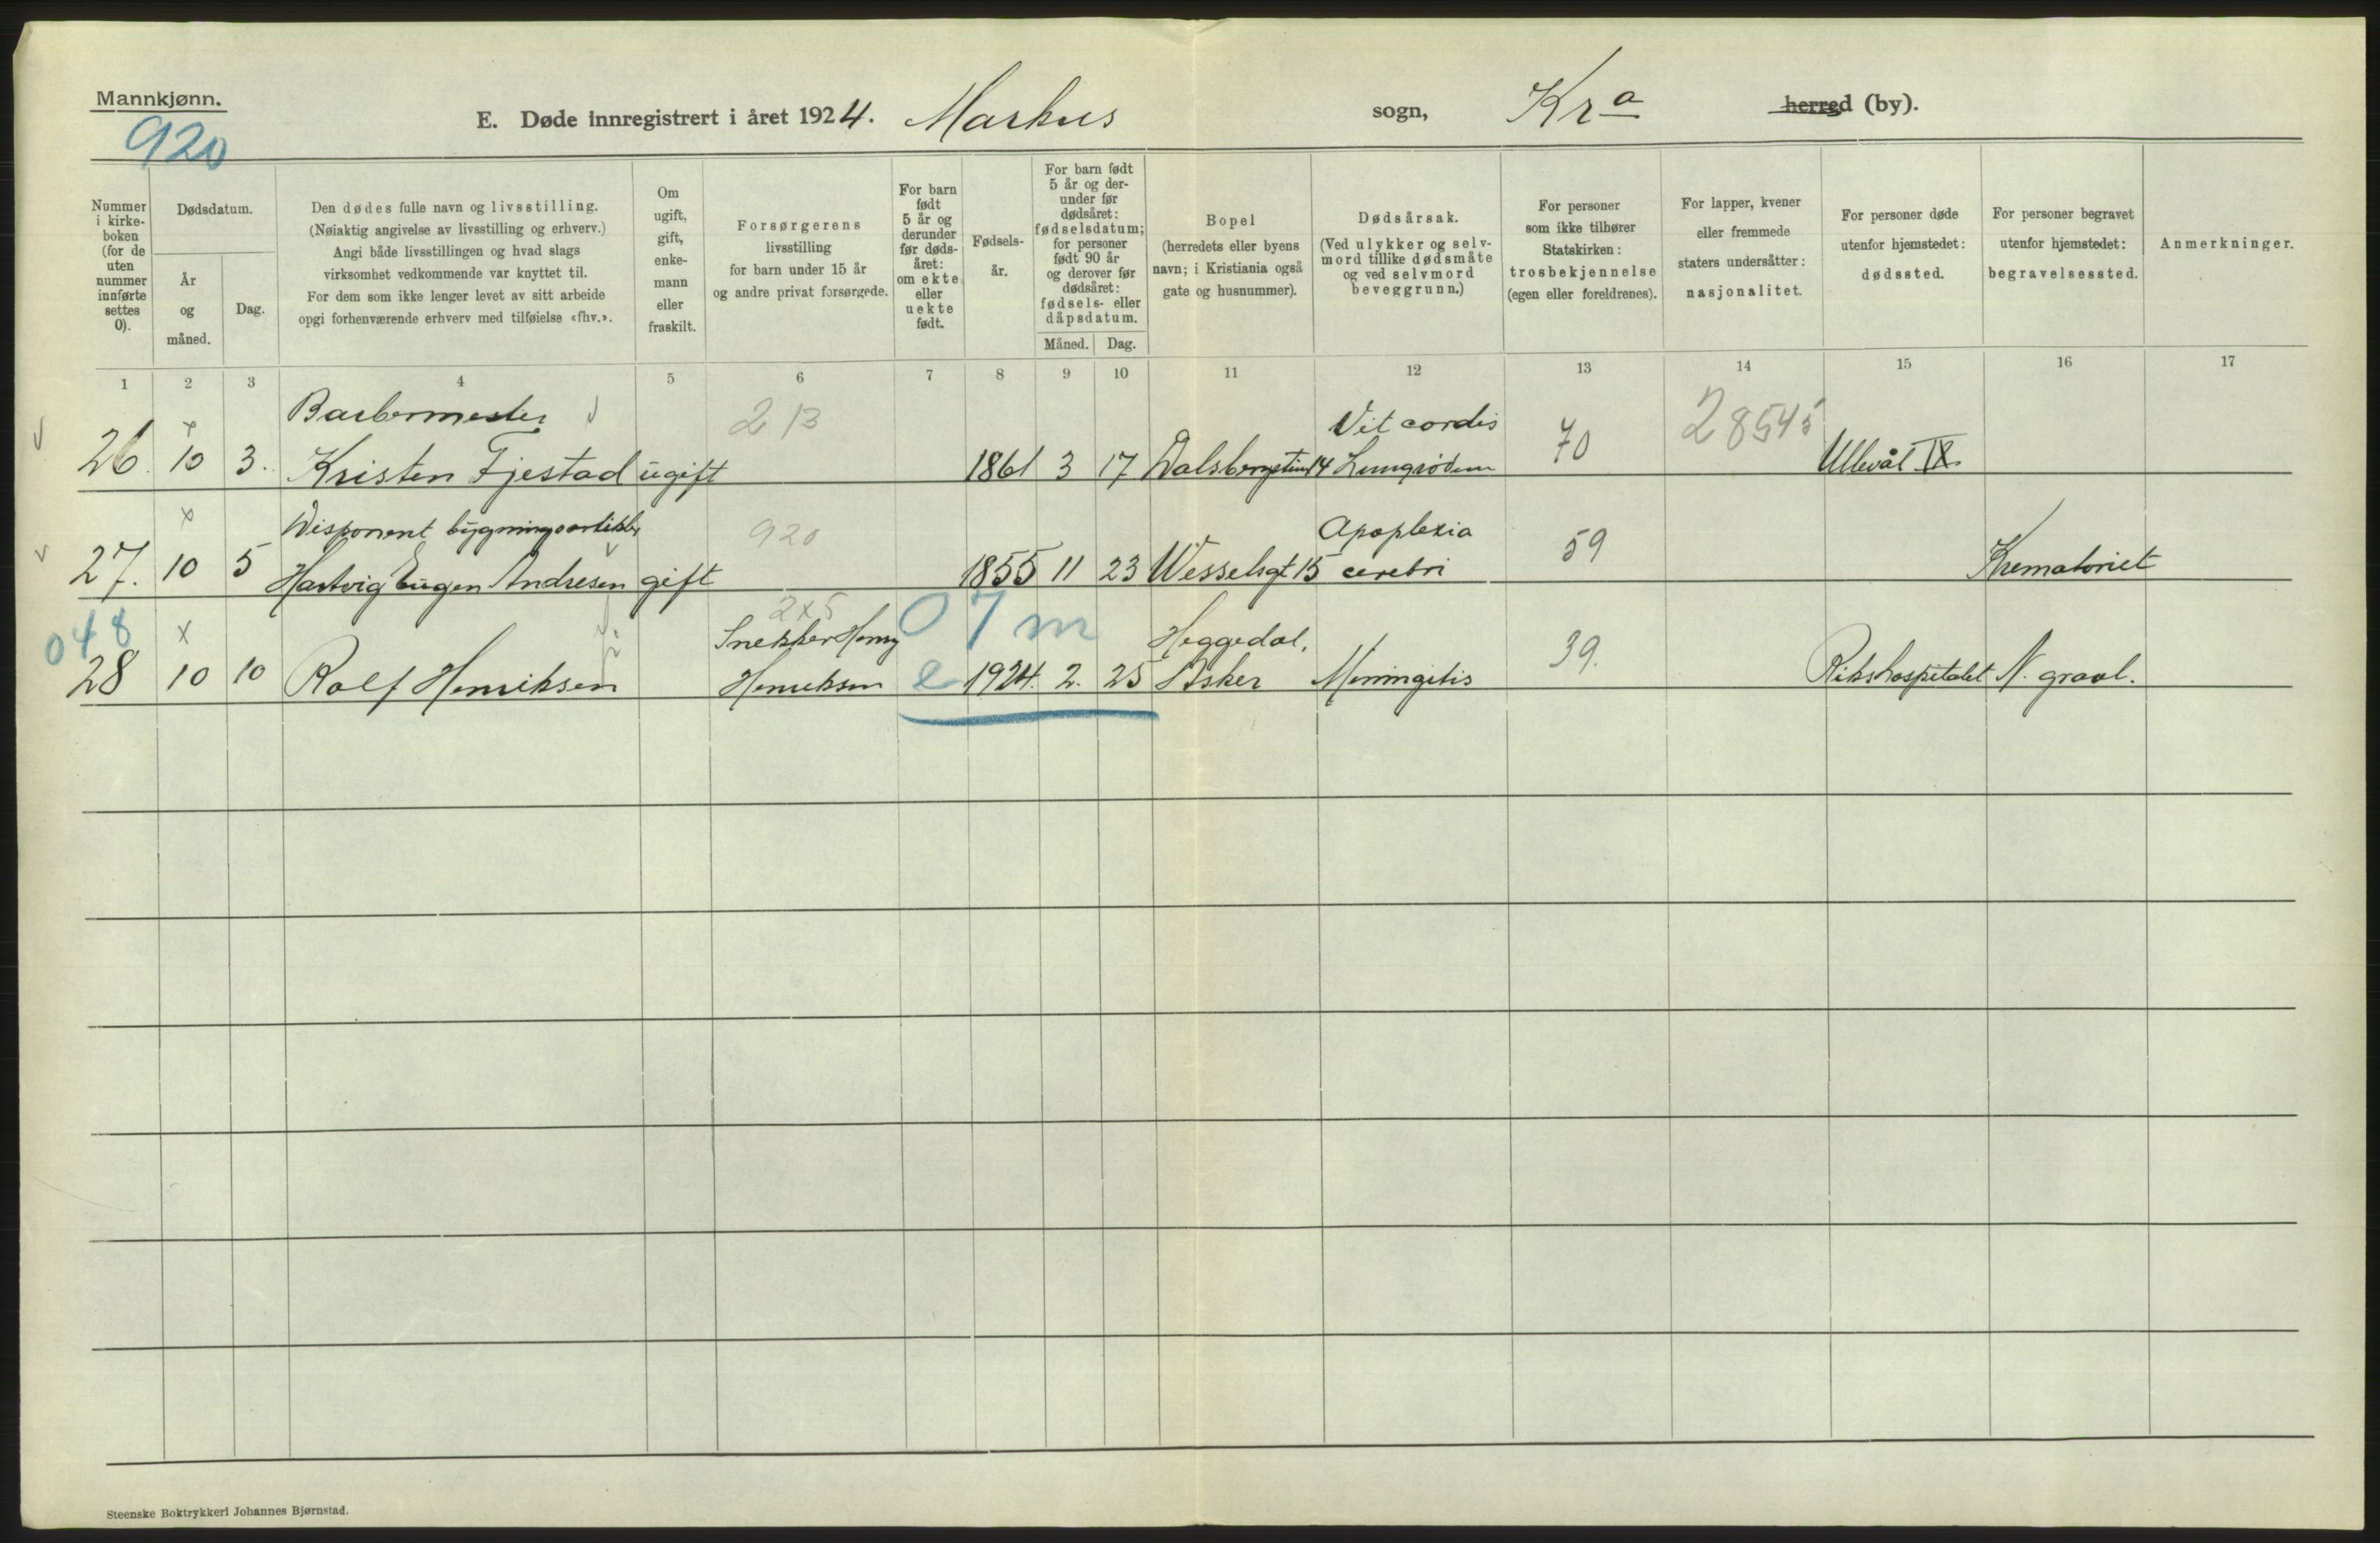 Mannkjønn.
920
E. Døde innregistrert i året 1924. Markus sogn, Kra herred (by).
Nummer i kirke-boken (for de uten nummer innførte settes 0).
Dødsdatum.
År og måned.
Dag.
Den dødes fulle navn og livsstilling.
(Nøiaktig angivelse av livsstilling og erhverv.)
Angi både livsstillingen og hvad slags
virksomhet vedkommende var knyttet til.
For dem som ikke lenger levet av sitt arbeide
opgi forhenværende erhverv med tilføielse «fhv.».
Om ugift, gift, enke-mann eller fraskilt.
Forsørgerens
livsstilling
for barn under 15 år
og andre privat forsørgede.
For barn født 5 år og derunder før døds-året: om ekte eller uekte født.
Fødsels-år.
For barn født 5 år og der-under før dødsåret: fødselsdatum; for personer født 90 år og derover før dødsåret: fødsels- eller dåpsdatum.
Måned.
Dag.
Bopel
(herredets eller byens
navn; i Kristiania også
gate og husnummer).
Dødsårsak.
(Ved ulykker og selv-
mord tillike dødsmåte
og ved selvmord
beveggrunn.)
For personer
som ikke tilhører
Statskirken:
trosbekjennelse
(egen eller foreldrenes).
For lapper, kvener
eller fremmede
staters undersåtter:
nasjonalitet.
For personer døde
utenfor hjemstedet:
dødssted.
For personer begravet
utenfor hjemstedet:
begravelsessted.
Anmerkninger.
1 2 3 4 5 6 7 8 9 10 11 12 13 14 15 16 17
Barbermester 213 Vit cordis 28545
26. 10 3. Kristen Fjestad ugift 1861 3 17 Dalsbergstien 14 Lungeødem 70 Ullevål IX.
Disponent bygningsartikler 920 Apoplexia
27. 10 5 Hartvig Eugen Andresen gift 1855 11 23 Wesselsgt 15 cerebri 59 Krematoriet
048 2x5 07m
Snekker Henry Heggedal,
28 10 10 Rolf Henriksen Henriksen e 1924. 2. 25 Asker Meningitis 39. Rikshospitalet N. gravl.
Steenske Boktrykkeri Johannes Bjørnstad.